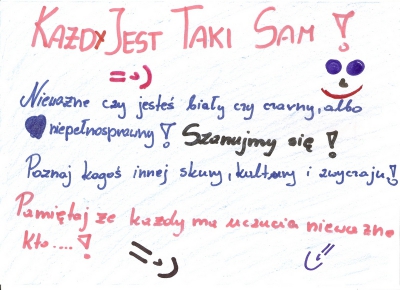 KAŻDY JEST TAKI SAM!
=)
Nieważne czy jesteś biały czy czarny, albo
niepełnosprawny! Szanujmy się!
Poznaj kogoś innej skury, kultury i zwyczaju!
Pamiętaj że każdy ma uczucia nieważne
kto....!
=)